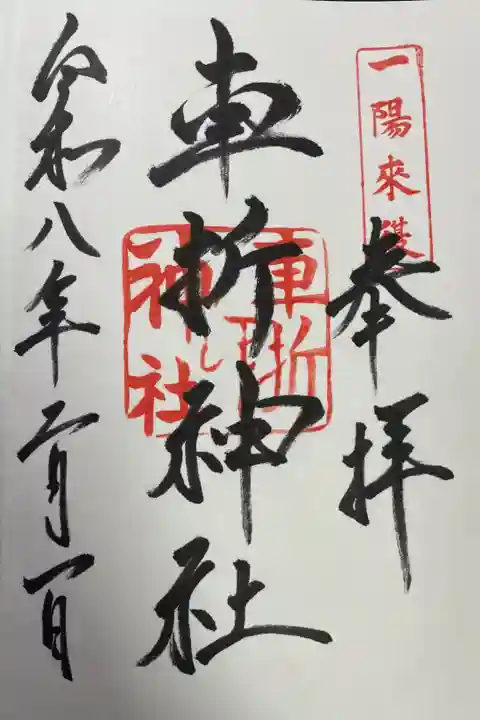 一陽來復
奉拝
車折神社
車折
神社
令和八年二月一日